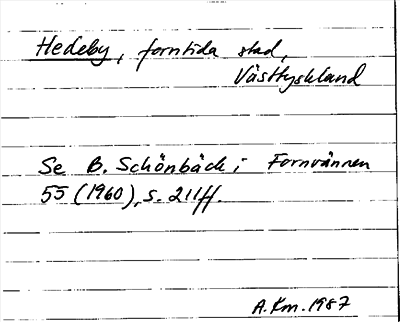 Hedeby, forntida stad,
Västtyskland
Se B. Schönbäck i Fornvännen
55 (1960), s. 211ff.
A.Km. 1987